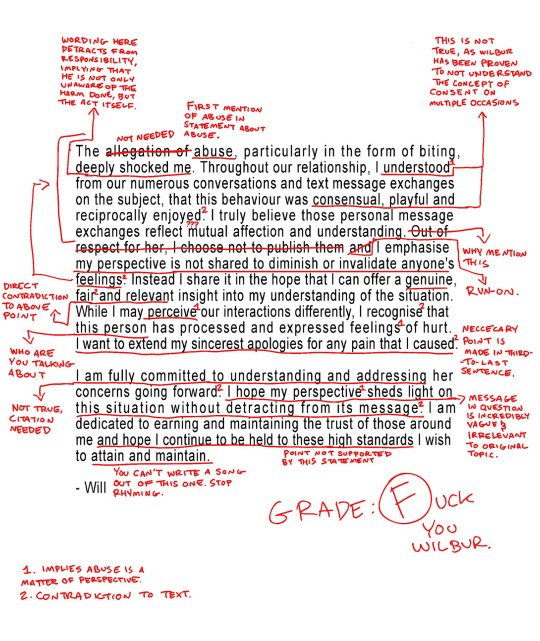 WORDING HERE
DETRACTS FROM
RESPONSIBILITY,
IMPLYING THAT
HE IS NOT ONLY
UNAWARE OF THE
HARM DONE, BUT
THE ACT ITSELF.
FIRST MENTION
OF ABUSE IN
STATEMENT ABOUT
ABUSE.
THIS IS NOT
TRUE, AS WILBUR
HAS BEEN PROVEN
TO NOT UNDERSTAND
THE CONCEPT OF
CONSENT ON
MULTIPLE OCCASIONS
NOT NEEDED
The allegation of abuse, particularly in the form of biting,
deeply shocked me. Throughout our relationship, I understood1
from our numerous conversations and text message exchanges
on the subject, that this behaviour was consensual, playful and
reciprocally enjoyed2. I truly believe those personal message
???
exchanges reflect mutual affection and understanding. Out of
respect for her, I choose not to publish them and I emphasise
my perspective is not shared to diminish or invalidate anyone's
feelings2. Instead I share it in the hope that I can offer a genuine,
fair2 and relevant insight into my understanding of the situation.
While I may perceive1 our interactions differently, I recognise2 that
this person has processed and expressed feelings1 of hurt.
I want to extend my sincerest apologies for any pain that I caused2.
WHY MENTION
THIS
RUN-ON.
DIRECT
CONTRADICTION
TO ABOVE
POINT
WHO ARE
YOU TALKING
ABOUT
NECCECARY
POINT IS
MADE IN THIRD-
TO-LAST
SENTENCE.
I am fully committed to understanding and addressing her
concerns going forward2. I hope my perspective1 sheds light on
this situation without detracting from its message2. I am
dedicated to earning and maintaining the trust of those around
me and hope I continue to be held to these high standards I wish
to attain and maintain.
NOT TRUE,
CITATION
NEEDED
MESSAGE
IN QUESTION
IS INCREDIBLY
VAGUE &
IRRELEVANT
TO ORIGINAL
TOPIC.
POINT NOT SUPPORTED
BY THIS STATEMENT
YOU CAN'T WRITE A SONG
OUT OF THIS ONE. STOP
RHYMING.
- Will
GRADE: FUCK
YOU
WILBUR.
1. IMPLIES ABUSE IS A
MATTER OF PERSPECTIVE.
2. CONTRADICTION TO TEXT.